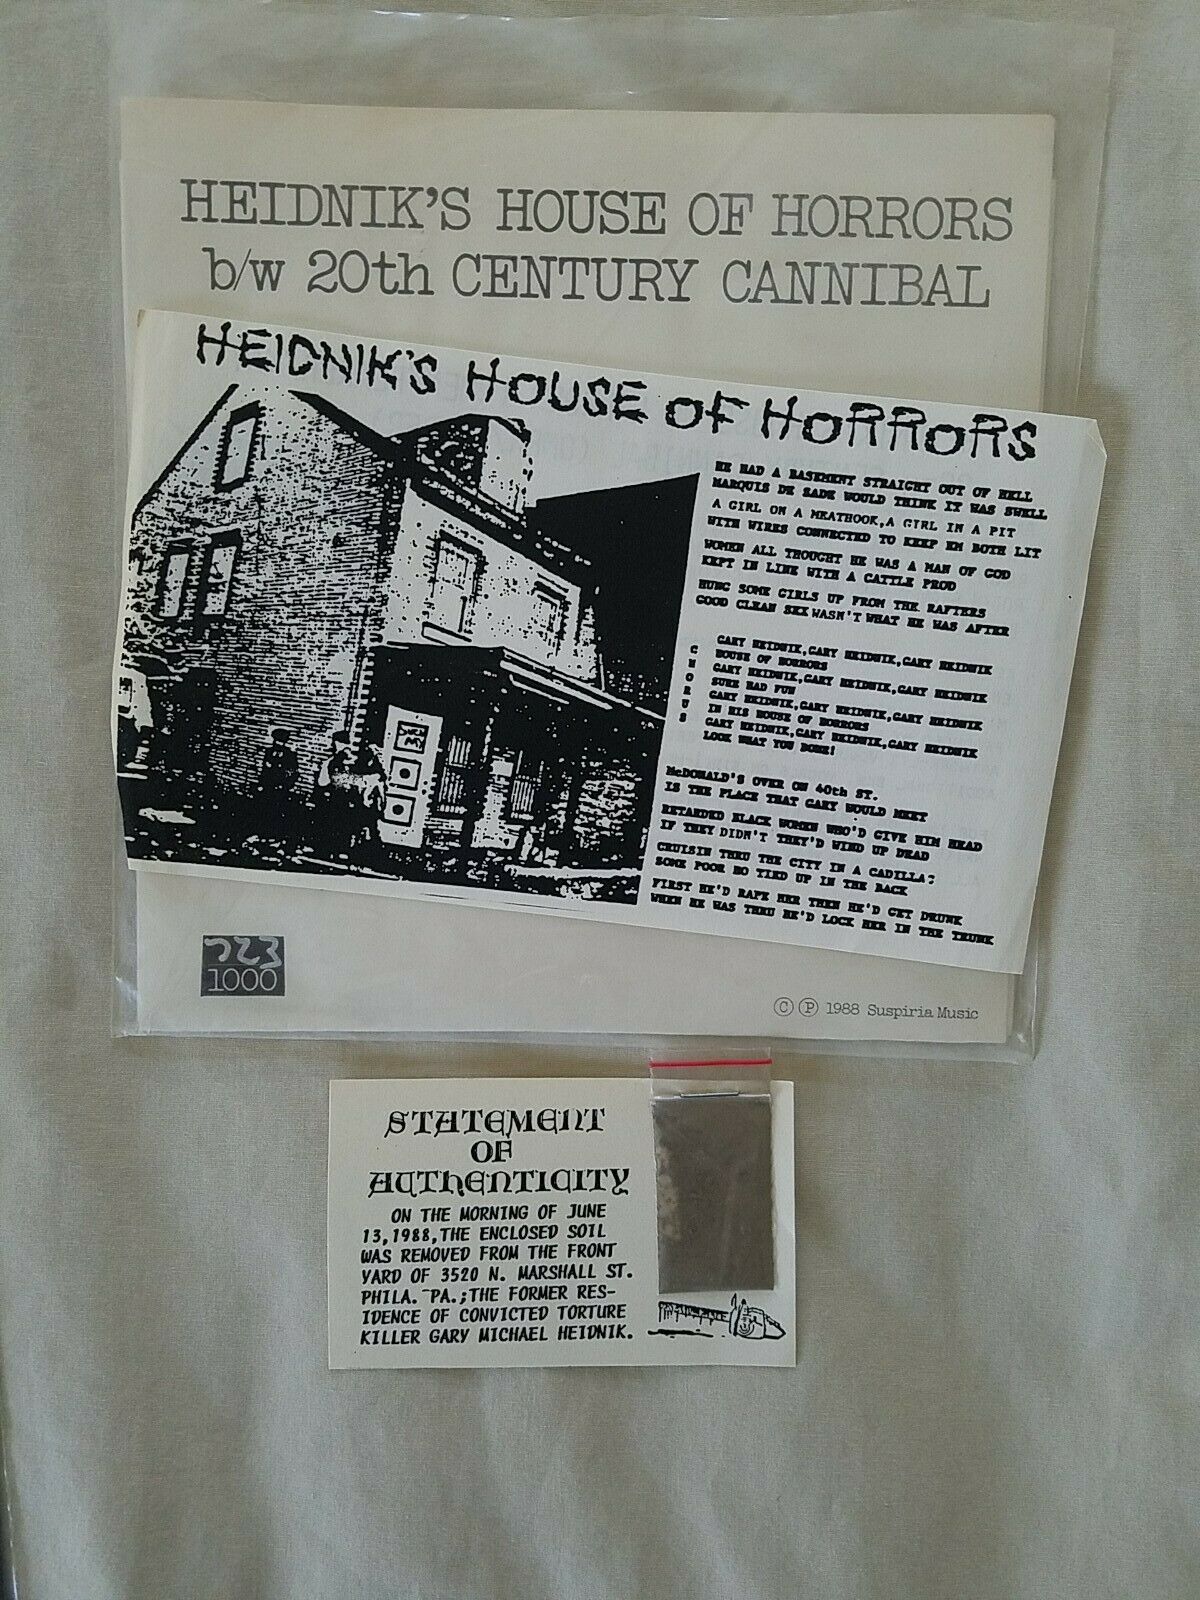 HEIDNIK'S HOUSE OF HORRORS
b/w 20th CENTURY CANNIBAL
HEIDNIK'S HOUSE OF HORRORS
HE HAD A BASEMENT STRAIGHT OUT OF HELL
MARQUIS DE SADE WOULD THINK IT WAS SWELL
A GIRL ON A MEATHOOK,A GIRL IN A PIT
WITH WIRES CONNECTED TO KEEP EM BOTH LIT
WOMEN ALL THOUGHT HE WAS A MAN OF GOD
KEPT IN LINE WITH A CATTLE PROD
HUNG SOME GIRLS UP FROM THE RAFTERS
GOOD CLEAN SEX WASN'T WHAT HE WAS AFTER
CHORUS
GARY HEIDNIK,GARY HEIDNIK,GARY HEIDNIK
HOUSE OF HORRORS
GARY HEIDNIK,GARY HEIDNIK,GARY HEIDNIK
SURE HAD FUN
GARY HEIDNIK,GARY HEIDNIK,GARY HEIDNIK
IN HIS HOUSE OF HORRORS
GARY HEIDNIK,GARY HEIDNIK,GARY HEIDNIK
LOOK WHAT YOU DONE!
McDONALD'S OVER ON 40th ST.
IS THE PLACE THAT GARY WOULD MEET
RETARDED BLACK WOMEN WHO'D GIVE HIM HEAD
IF THEY DIDN'T THEY'D WIND UP DEAD
CRUISIN THRU THE CITY IN A CADILLA:
SOME POOR HO TIED UP IN THE BACK
FIRST HE'D RAPE HER THEN HE'D GET DRUNK
WHEN HE WAS THRU HE'D LOCK HER IN THE TRUNK
723
1000
© ℗ 1988 Suspiria Music
STATEMENT
OF
AUTHENTICITY
ON THE MORNING OF JUNE
13,1988,THE ENCLOSED SOIL
WAS REMOVED FROM THE FRONT
YARD OF 3520 N. MARSHALL ST.
PHILA. PA.;THE FORMER RES-
IDENCE OF CONVICTED TORTURE
KILLER GARY MICHAEL HEIDNIK.